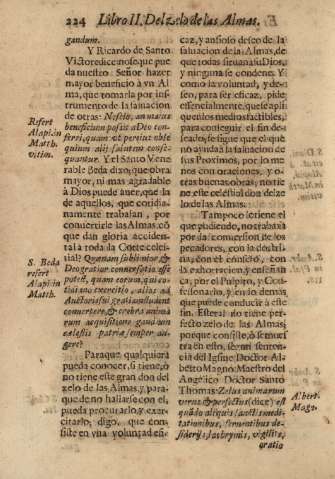 224 Libro II. Del zelo de las Almas.
gandum.
Y Ricardo de Santo
Victore dice no se que pue
da nuestro Señor hazer
mayor beneficio à vn Al
ma, que tomarla por ins
trumento de la saluacion
de otras: Nescio, an maius
beneficium possit a Deo con
ferri, quam vt per ist
quium alij salutem conse
quantur. Y el Santo Vene
rable Beda dixo, que obra
mayor, ni mas agradable
à Dios puede auer, que la
de aquellos, que cotidia
namente trabajan, por
conuertirle las Almas, cõ
que dan gloria acciden
tal à toda la Corte celes
tial? Quanam sublimior &
Deo gratior conuersatio esse
potest, quam eorum, qui co
tidiano exercitio, alios ad
Auctoris sui gratiam student
conuertere, & crebra anima
rum acquisitione gaudium
cælestis patriæ semper au
gere?
Paraque qualquiera
pueda conocer, si tiene, ò
no tiene este gran don del
zelo de las Almas, y para
que de no hallarse con el,
pueda procurarlo, y exer
citarlo; digo, que consis
te en vna voluntad efi-
Refert
Alap. in
Matth.
S. Beda
refert
Alap. in
Matth.
caz, y ansioso deseo de la
saluacion de las Almas, de
que todas siruan à su Dios,
y ninguna se condene. Y
como la voluntad, y de se
seo, para ser eficaz, pide
essencialmente, que se apli
que à los medios factibles,
para conseguir el fin de-
seado, se sigue que el que
no ayuda à la saluacion de
sus Proximos, por lo me
nos con oraciones, y o-
tras buenas obras, no tie
ne este celestial don del ze
lo de las Almas.
Tampoco le tiene el
que pudiendo, no trabaja
por la conuersion de los
pecadores, con la doctri
na, con el consejo, con
la exhortacion, y enseñan
ça, por el Pulpito, y Con
fessonario, y en lo demàs,
que puede conducir à este
fin. Este tal no tiene per
fecto zelo de las Almas;
porque consiste, à se mues
tra en esto, segun senten
cia del Insigne Doctor Al
berto Magno, Maestro del
Angelico Doctor Santo
Thomas: Zelus animarum
verus, & perfectus (dice) est
quãdo aliquis sanctis medi
tationibus, feruentibus de-
siderijs, lachrymis, vigilijs,
oratio
Albert.
Mag.